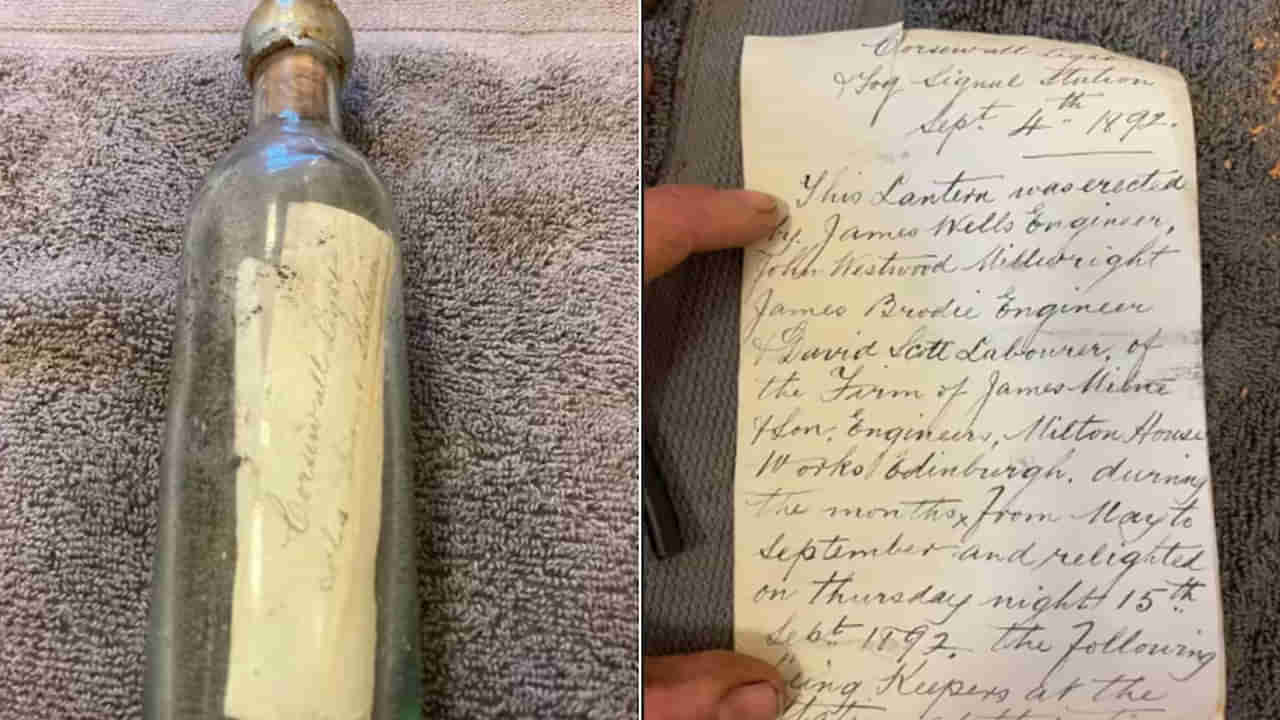 Corsewall light
Corsewall Light
& Fog Signal Station
Sept. 4th 1892.
This Lantern was erected
by. James Wells Engineer,
John Westwood Millwright
James Brodie Engineer
& David Scott Labourer, of
the Firm of James Milne
& Son, Engineers, Milton House
Works Edinburgh. during
the months, from May to
September and relighted
on thursday night 15th
Sept 1892. the following
being Keepers at the